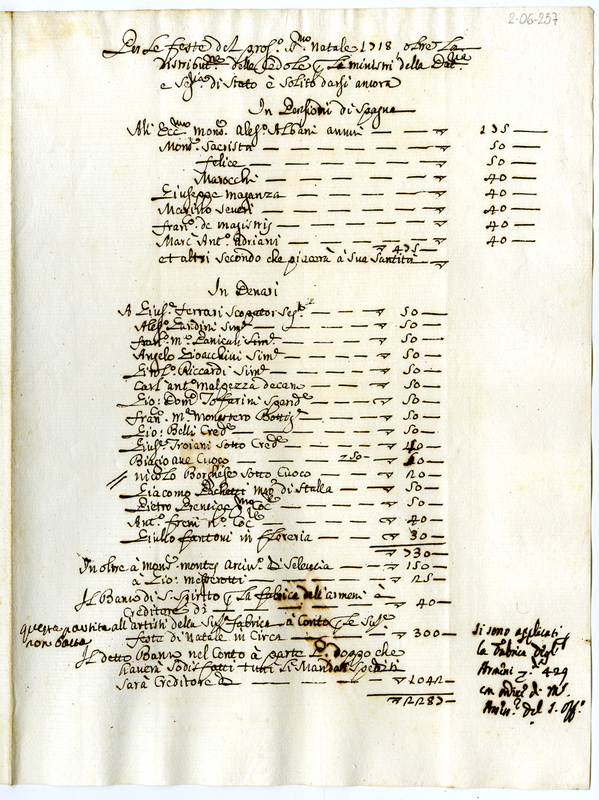 2-06-237
Per Le feste del pross.º S.mo Natale 1718 oltre La
distribut.ne delle Cedole p La ministri della Dat.ria
e Seg.ria di Stato è Solito darsi ancora
In Pensioni di Spagna
All' Ecc.mo mons.r Aless.º Albani annui 135
Mons.r Sacrista 50
felice 50
Marocchi 40
Giuseppe Maganza 40
Severi 40
fran.º de magistris 40
Marc' Ant.º Adriani 40
435
et altri secondo che piacerà à Sua Santità
In Denari
A Gius.e Ferrari Scopator Seg.to 50
Aless.º Landini Sim.e 50
fran.º m.ª Paniculi Sim.e 50
Angelo Gioacchini Sim.e 50
Riccardi Sim.e 50
Carl' ant.º malpezza decano 50
Gio: Dom.º Toffarini Spend.e 50
fran.º m.ª Monastero Bottig.e 50
Gio: Belli Cred.e 50
Gius.e Troiani Sotto Cred.e 40
Biacio ave Cuoco 50
Nicolo Borghese Sotto Cuoco 20
Giacomo Pachetti de Stalla 50
Pietro 50
Ant.º freni 40
Giulio fantoni in floreria 30
730
In oltre à mons.r montes Arciv.º di Seleucia 150
à Gio: 25
Il Banco di S. Spirito p La fabrica dell' armeni à
Creditore di 40
Questa partita all' artisti della Sud.a fabrica à Conto p Le Sud.e
non basta feste di Natale in Circa 300
Il detto Banco nel Conto à parte doppo che
haverà Sodisfatti tutti li Mandati Spediti
Sarà Creditore di 1042
2287
Si sono applicati
la fabrica degl'
Armini 429
con ordine di
del S. Off.º